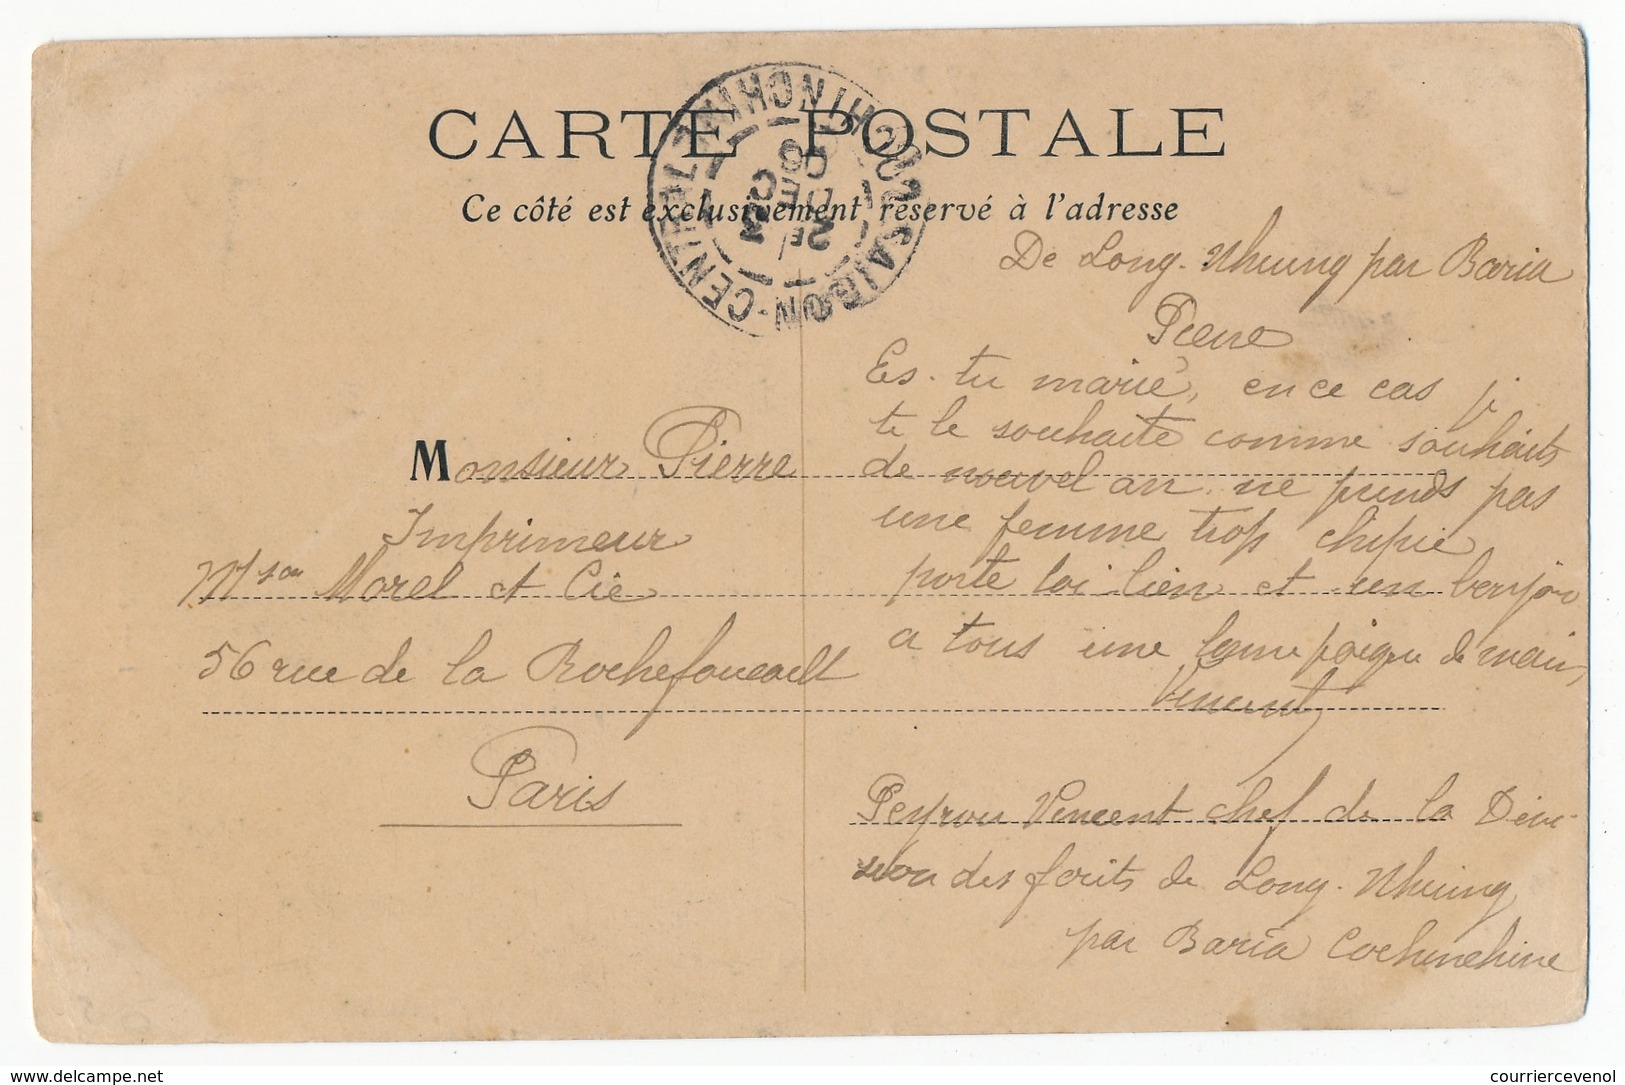 CARTE POSTALE
Ce côté est exclusivement réservé à l'adresse
SAIGON-CENTRAL COCHINCHINE
2E
3
DEC
De Long-Nhung par Baria
Pierre
Es-tu marié, en ce cas je
te le souhaite comme souhaits
de nouvel an. ne prends pas
une femme trop chipie
porte toi bien et un bonjour
a tous une poignée de main,
Vincent
Monsieur Pierre
Imprimeur
Mson Morel et Cie
56 rue de la Rochefoucault
Paris
Peyrou Vincent chef de la Divi-
sion des forêts de Long-Nhung
par Baria Cochinchine
delcampe.net
courriercevenol